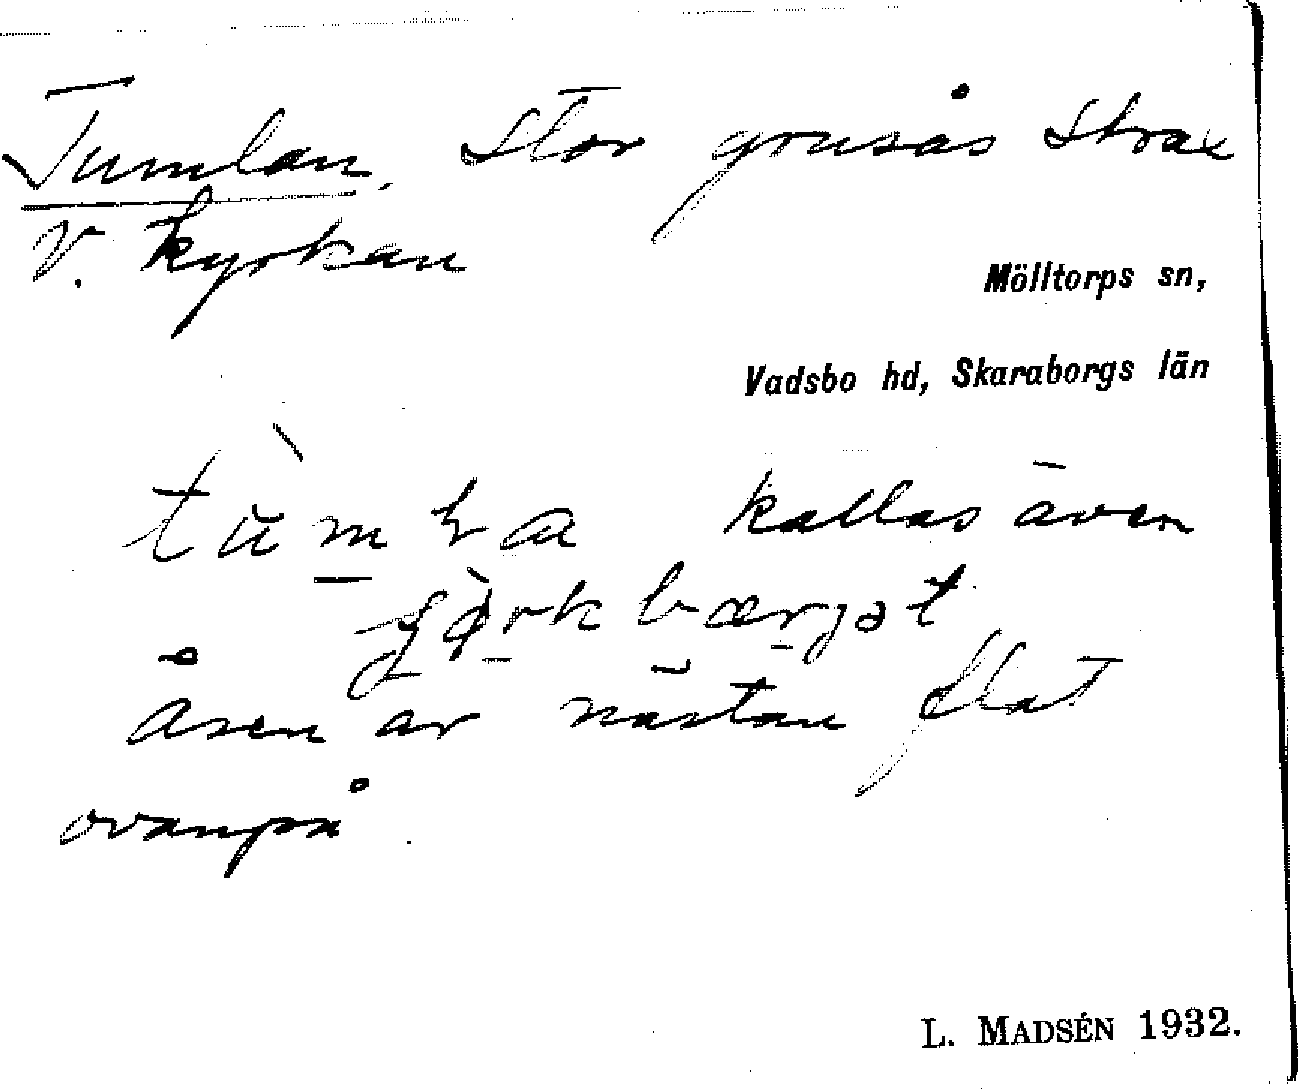 Tumlan. Stor grusås strax
v. kyrkan
Mölltorps sn,
Vadsbo hd, Skaraborgs län
kallas även
åsen är nästan flat
ovanpå
L. MADSÉN 1932.